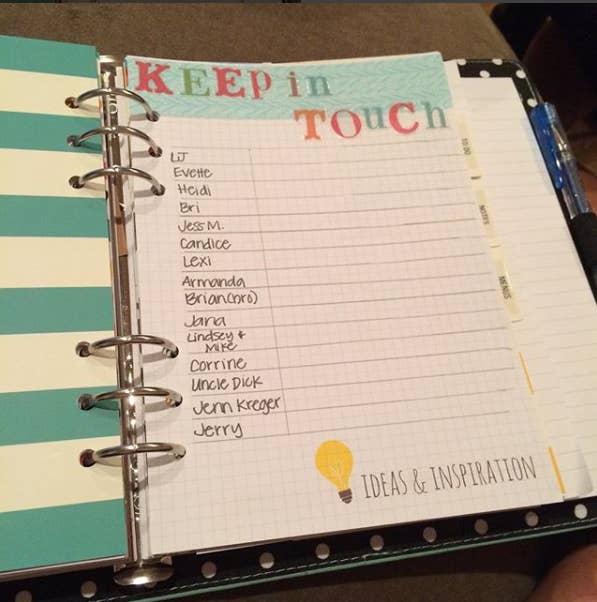 KEEP in
TOuCh
LJ
Evette
Heidi
Bri
Jess M.
Candice
Lexi
Armanda
Brian(bro)
Jana
Lindsey &
Mike
Corrine
Uncle Dick
Jenn Kreger
Jerry
IDEAS & INSPIRATION
TO DO
NOTES
MENUS